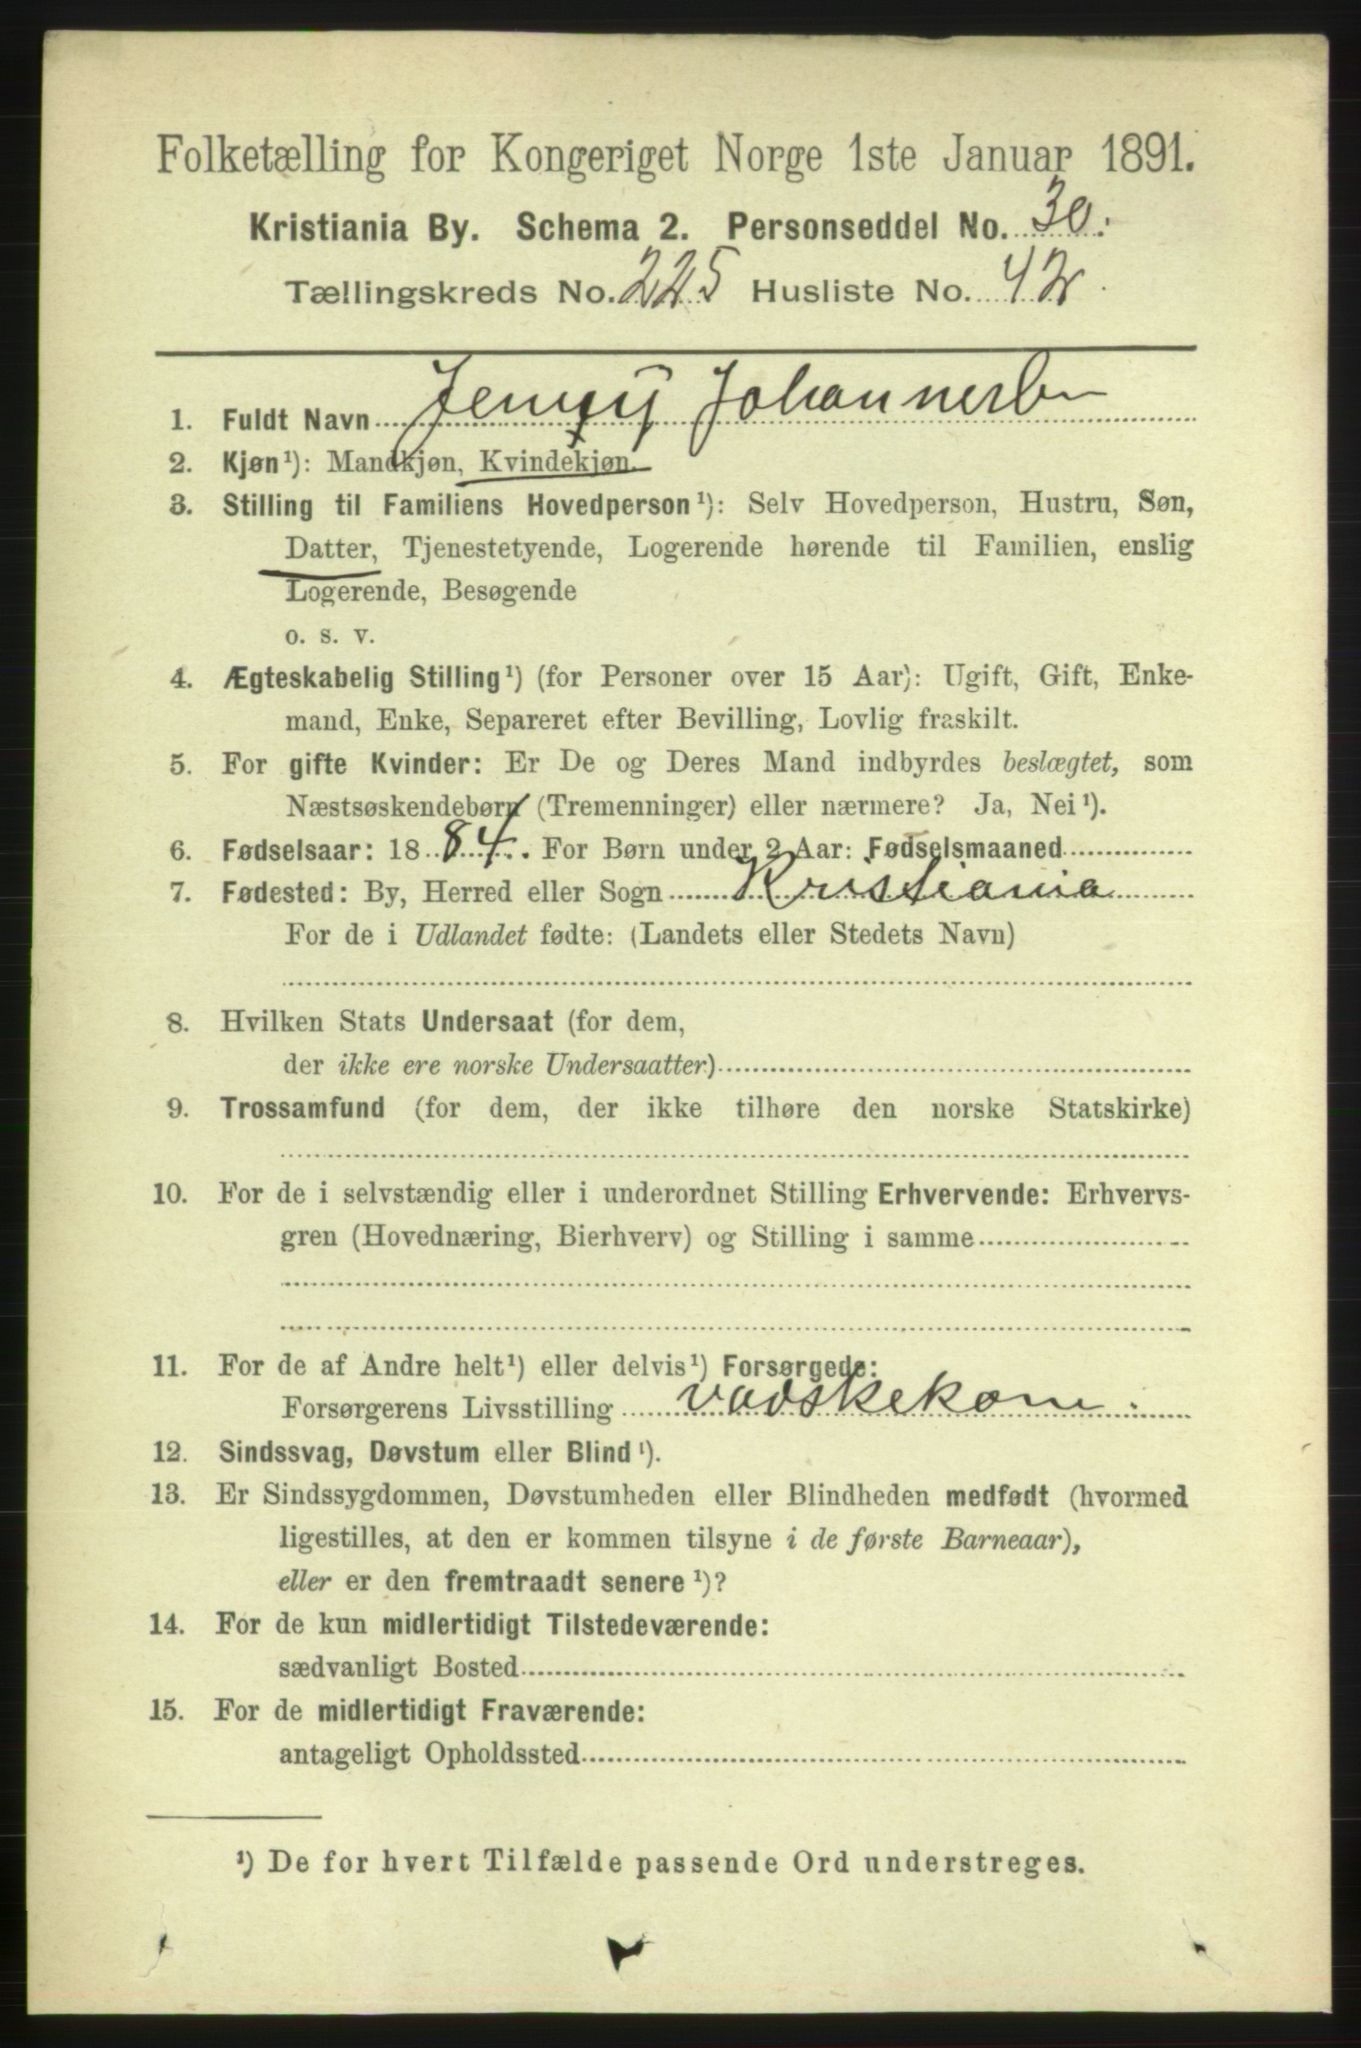 Folketælling for Kongeriget Norge 1ste Januar 1891.
Kristiania By. Schema 2. Personseddel No. 30.
Tællingskreds No. 225 Husliste No. 42.
1. Fuldt Navn Jenny Johannesen
2. Kjøn¹): Mandkjøn, Kvindekjøn.
3. Stilling til Familiens Hovedperson¹): Selv Hovedperson, Hustru, Søn,
Datter, Tjenestetyende, Logerende hørende til Familien, enslig
Logerende, Besøgende
o. s. v.
4. Ægteskabelig Stilling¹) (for Personer over 15 Aar): Ugift, Gift, Enke-
mand, Enke, Separeret efter Bevilling, Lovlig fraskilt.
5. For gifte Kvinder: Er De og Deres Mand indbyrdes beslægtet, som
Næstsøskendebørn (Tremenninger) eller nærmere? Ja, Nei¹).
6. Fødselsaar: 1884. For Børn under 2 Aar: Fødselsmaaned
7. Fødested: By, Herred eller Sogn Kristiania
For de i Udlandet fødte: (Landets eller Stedets Navn)
8. Hvilken Stats Undersaat (for dem,
der ikke ere norske Undersaatter)
9. Trossamfund (for dem, der ikke tilhøre den norske Statskirke)
10. For de i selvstændig eller i underordnet Stilling Erhvervende: Erhvervs-
gren (Hovednæring, Bierhverv) og Stilling i samme
11. For de af Andre helt¹) eller delvis¹) Forsørgede:
Forsørgerens Livsstilling vadskekone
12. Sindssvag, Døvstum eller Blind¹).
13. Er Sindssygdommen, Døvstumheden eller Blindheden medfødt (hvormed
ligestilles, at den er kommen tilsyne i de første Barneaar),
eller er den fremtraadt senere¹)?
14. For de kun midlertidigt Tilstedeværende:
sædvanligt Bosted
15. For de midlertidigt Fraværende:
antageligt Opholdssted
¹) De for hvert Tilfælde passende Ord understreges.